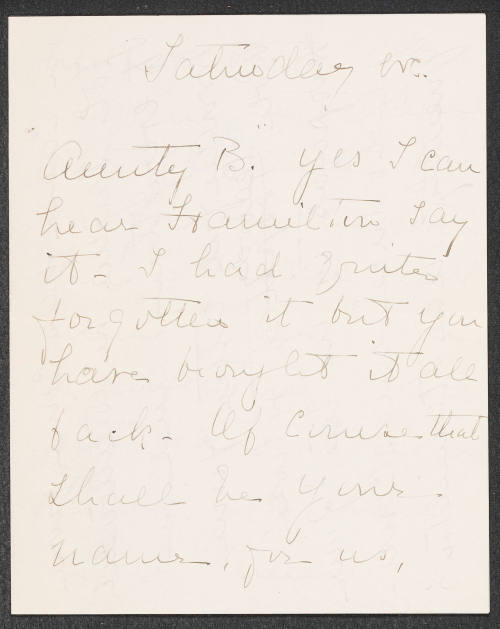 Saturday ev.
"Aunty B." yes I can
hear Hamilton say
it - I had quite
forgotten it but you
have brought it all
back - Of course that
shall be your
name, for us,